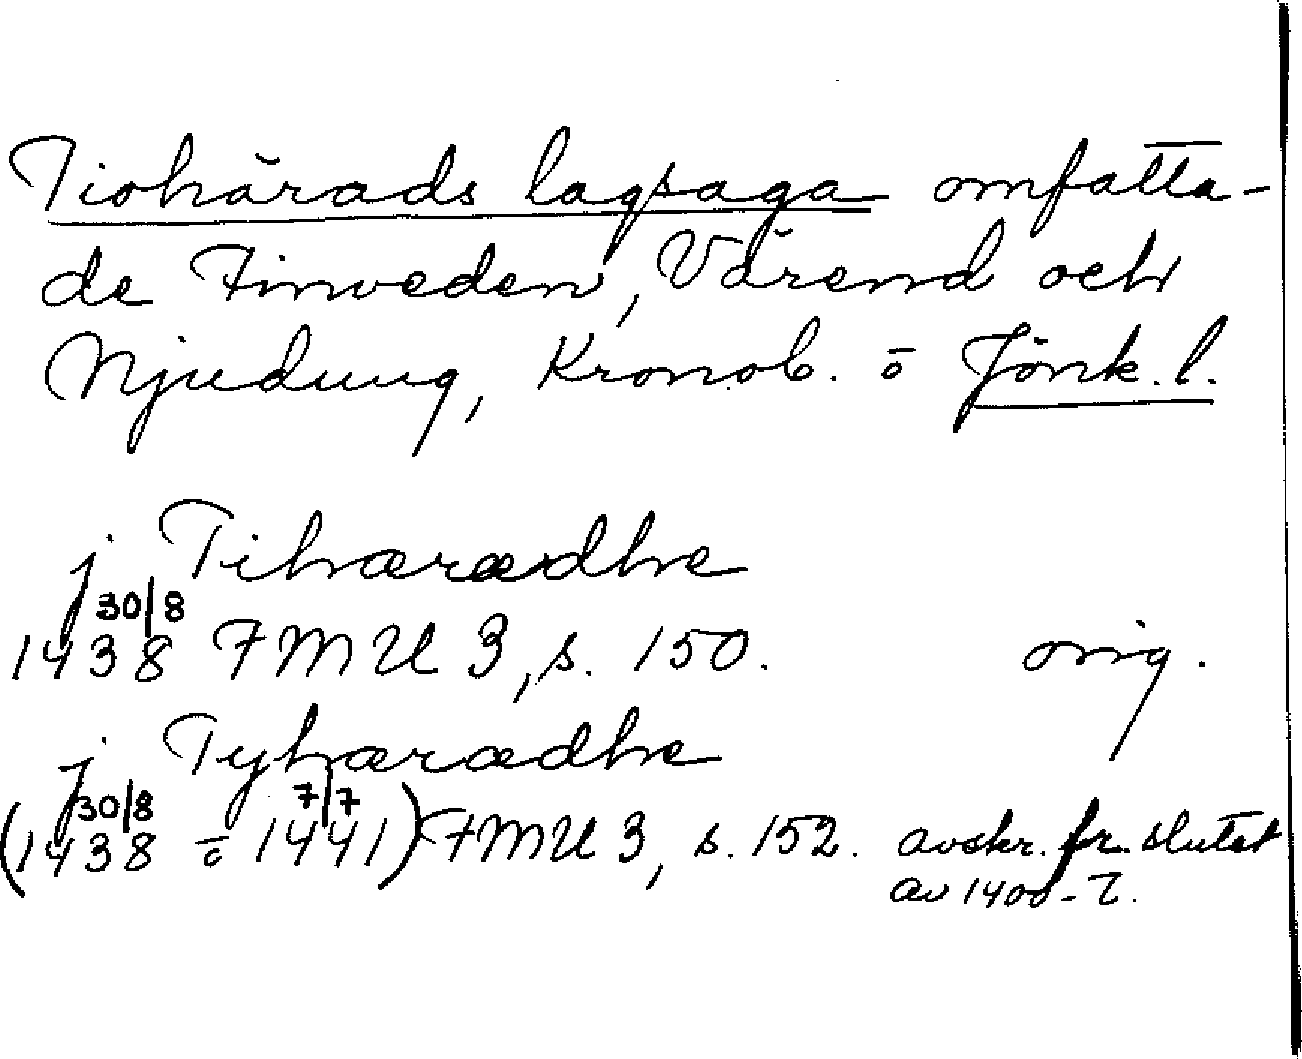 Tiohärads lagsaga omfatta-
de Finveden, Värend och
Njudung, Kronob. o Jönk. l.
j Tihæradhe
30/8
1438 FMU 3, s. 150. orig.
j Tyhærædhe
30/8 7/7
(1438 o 1441) FMU 3, s. 152. avskr. fr. slutet
av 1400-t.